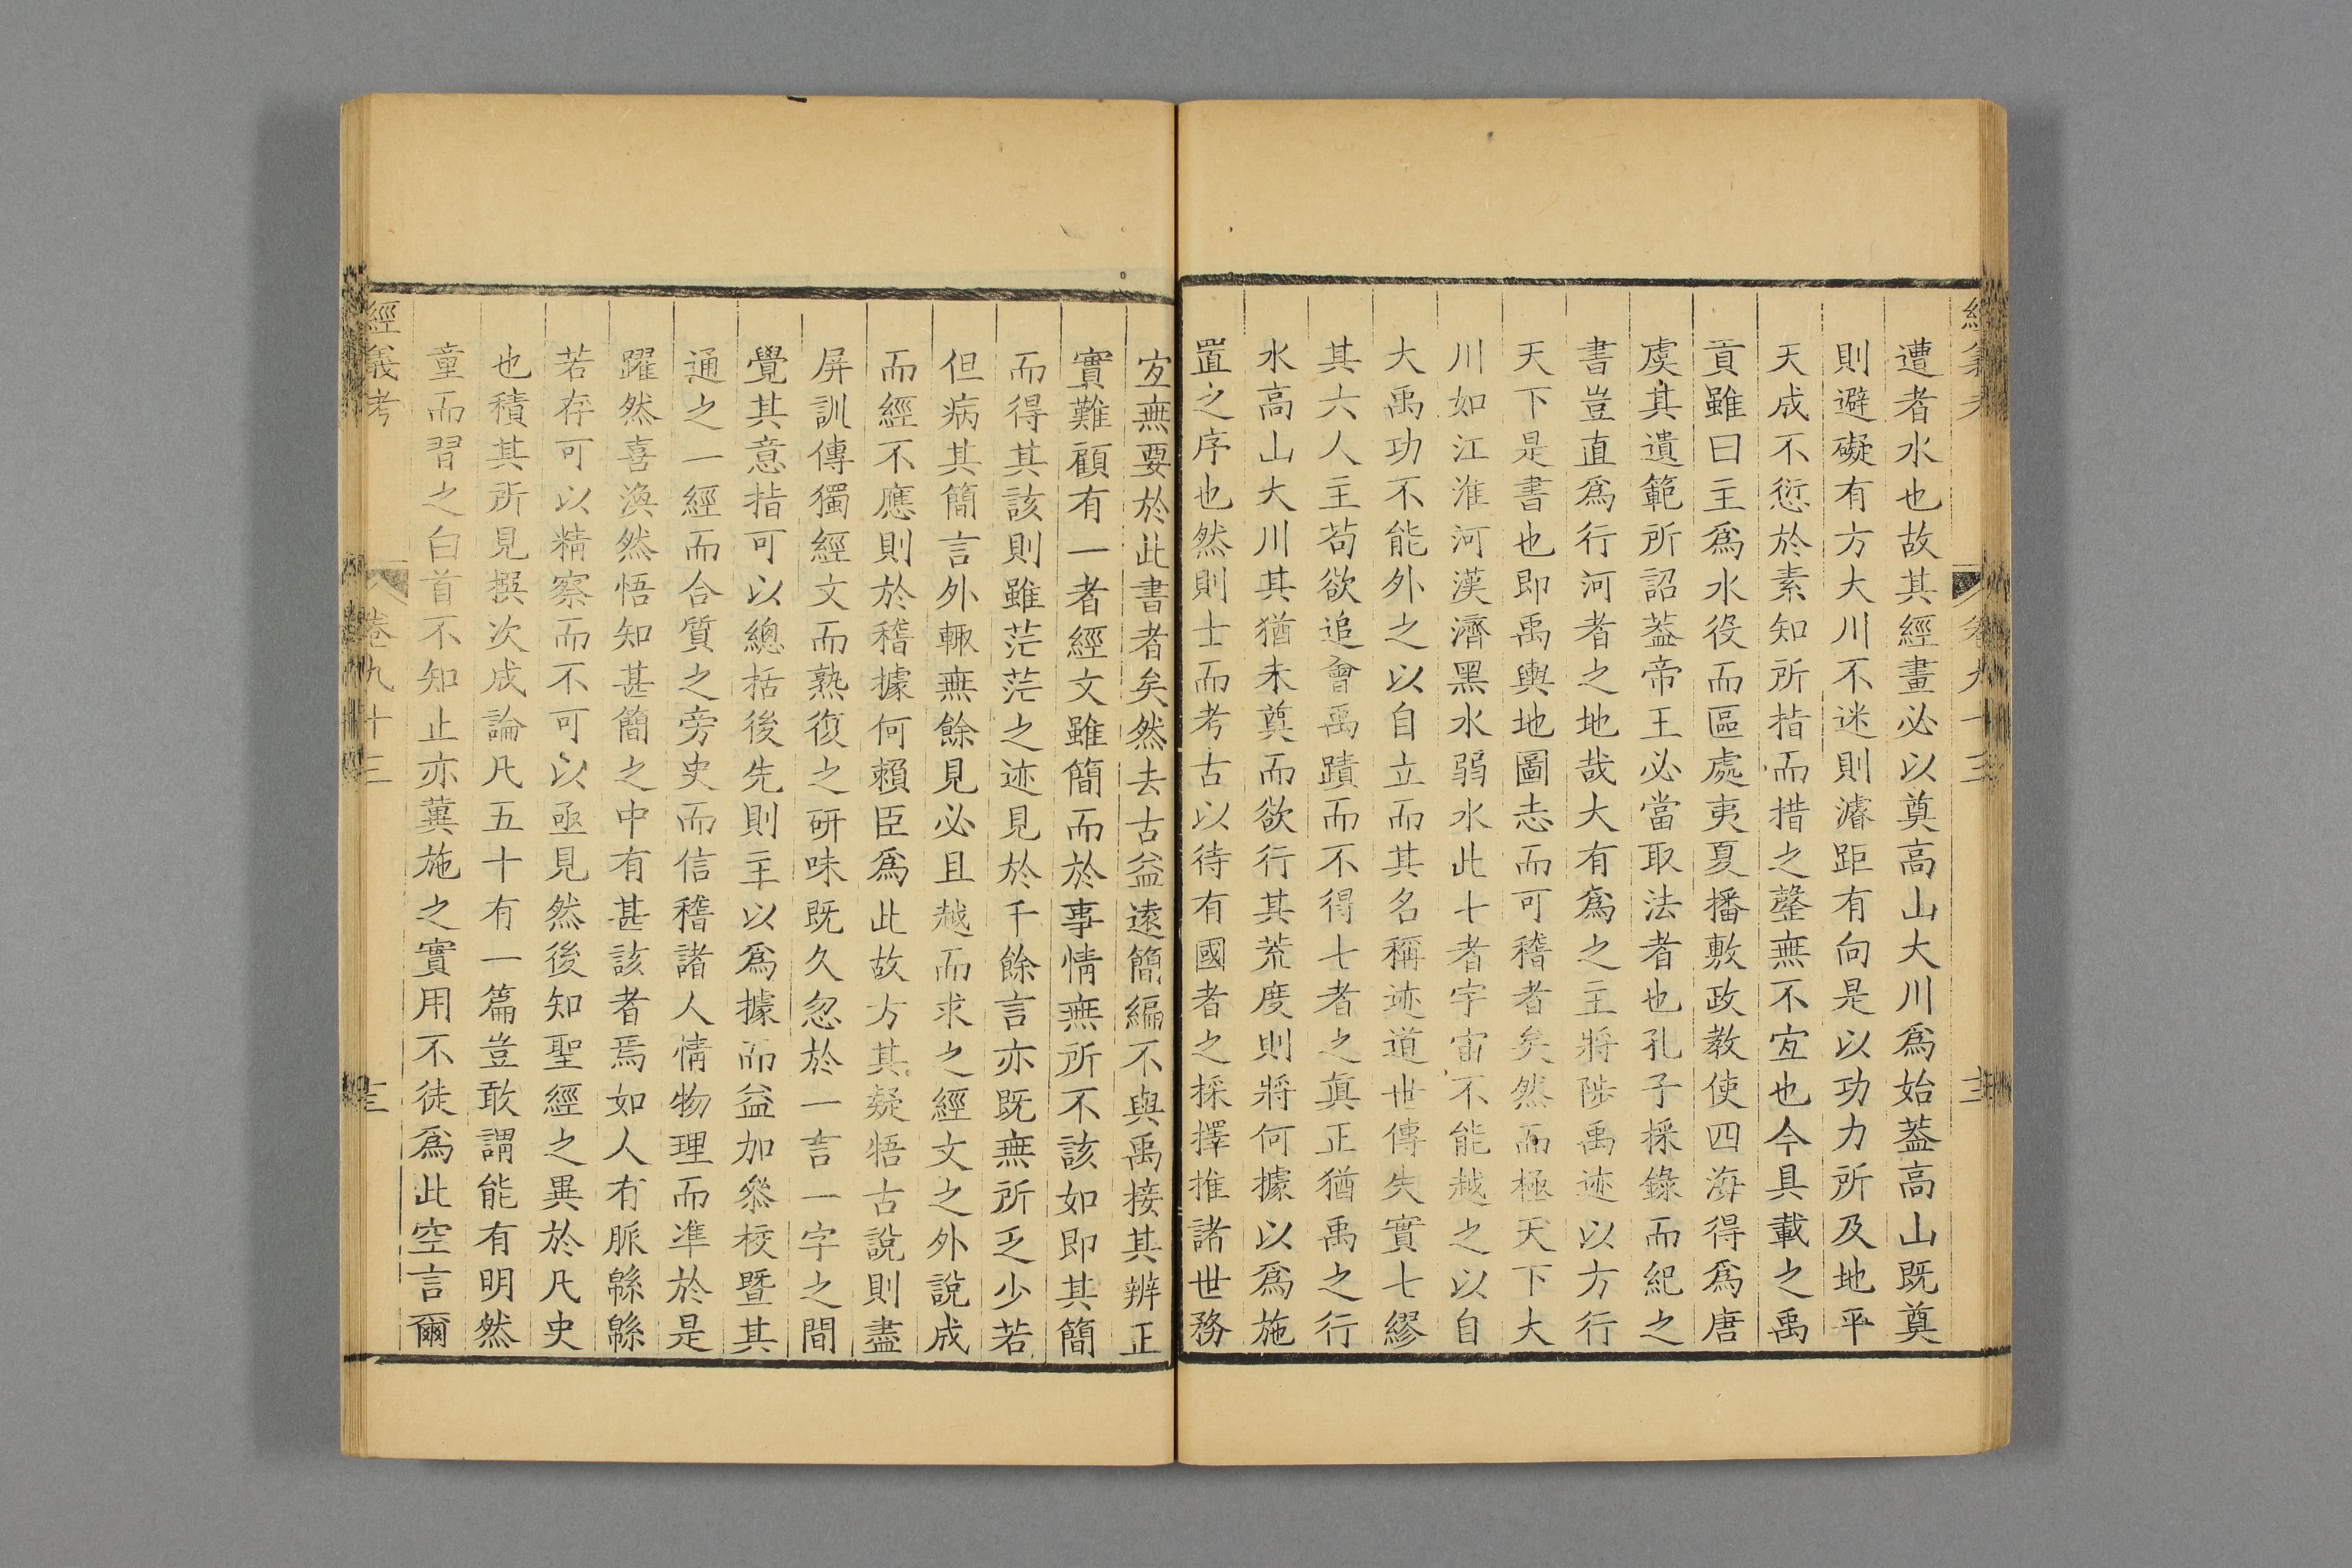 遭者水也故其經畫必以奠高山大川爲始葢高山既奠
則避礙有方大川不迷則濬距有向是以功力所及地平
天成不愆於素知所指而措之罄無不宐也今具載之禹
貢雖曰主爲水役而區處夷夏播敷政教使四海得爲唐
虞其遺範所詔葢帝王必當取法者也孔子採錄而紀之
書豈直爲行河者之地哉大有爲之主將陟禹迹以方行
天下是書也即禹輿地圖志而可稽者矣然而極天下大
川如江淮河漢濟黑水弱水此七者宇宙不能越之以自
大禹功不能外之以自立而其名稱迹道世傳失實七繆
其六人主苟欲追會禹蹟而不得七者之眞正猶禹之行
水高山大川其猶未奠而欲行其荒度則將何據以爲施
置之序也然則士而考古以待有國者之採擇推諸世務
宐無要於此書者矣然去古益逺簡編不與禹接其辨正
實難顧有一者經文雖簡而於事情無所不該如即其簡
而得其該則雖茫茫之迹見於千餘言亦既無所乏少若
但病其簡言外輒無餘見必且越而求之經文之外說成
而經不應則於稽據何賴臣爲此故方其疑牾古說則盡
屏訓傳獨經文而熟復之研味既久忽於一言一字之間
覺其意指可以總括後先則主以爲據而益加叅校暨其
通之一經而合質之旁史而信稽諸人情物理而凖於是
躍然喜渙然悟知甚簡之中有甚該者焉如人有脈緜緜
若存可以精察而不可以亟見然後知聖經之異於凡史
也積其所見撰次成論凡五十有一篇豈敢謂能有明然
童而習之白首不知止亦蘉施之實用不徒爲此空言爾
經義考
卷九十三